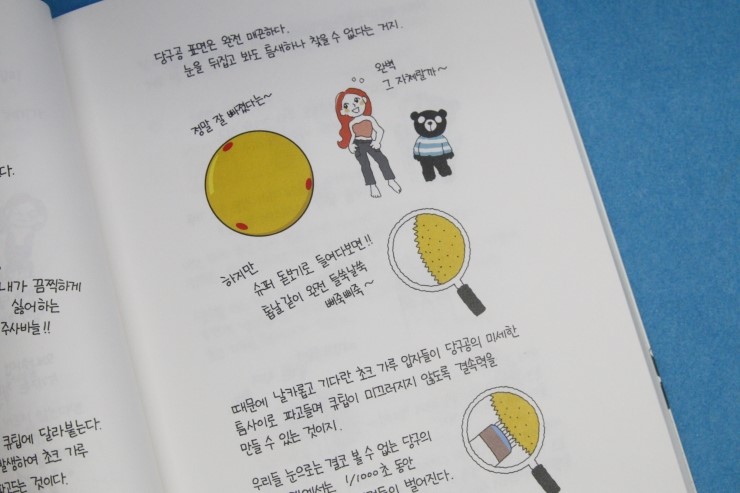 당구공 표면은 완전 매끈하다.
눈을 뒤집고 봐도 틈새하나 찾을 수 없다는 거지.
정말 잘 빠졌다는~
완벽
그 자체랄까~
하지만
슈퍼 돋보기로 들여다보면!!
톱날같이 완전 들쑥날쑥
삐죽삐죽~
때문에 날카롭고 기다란 초크 가루 입자들이 당구공의 미세한
틈사이로 파고들며 큐팁이 미끄러지지 않도록 결속력을
만들 수 있는 것이지.
우리들 눈으로는 결코 볼 수 없는 당구의
에서는 1/1000초 동안
들이 벌어진다.
다.
내가 끔찍하게
싫어하는
주사바늘!!
큐팁에 달라붙는다.
발생하여 초크 가루
파고드는 것이다.